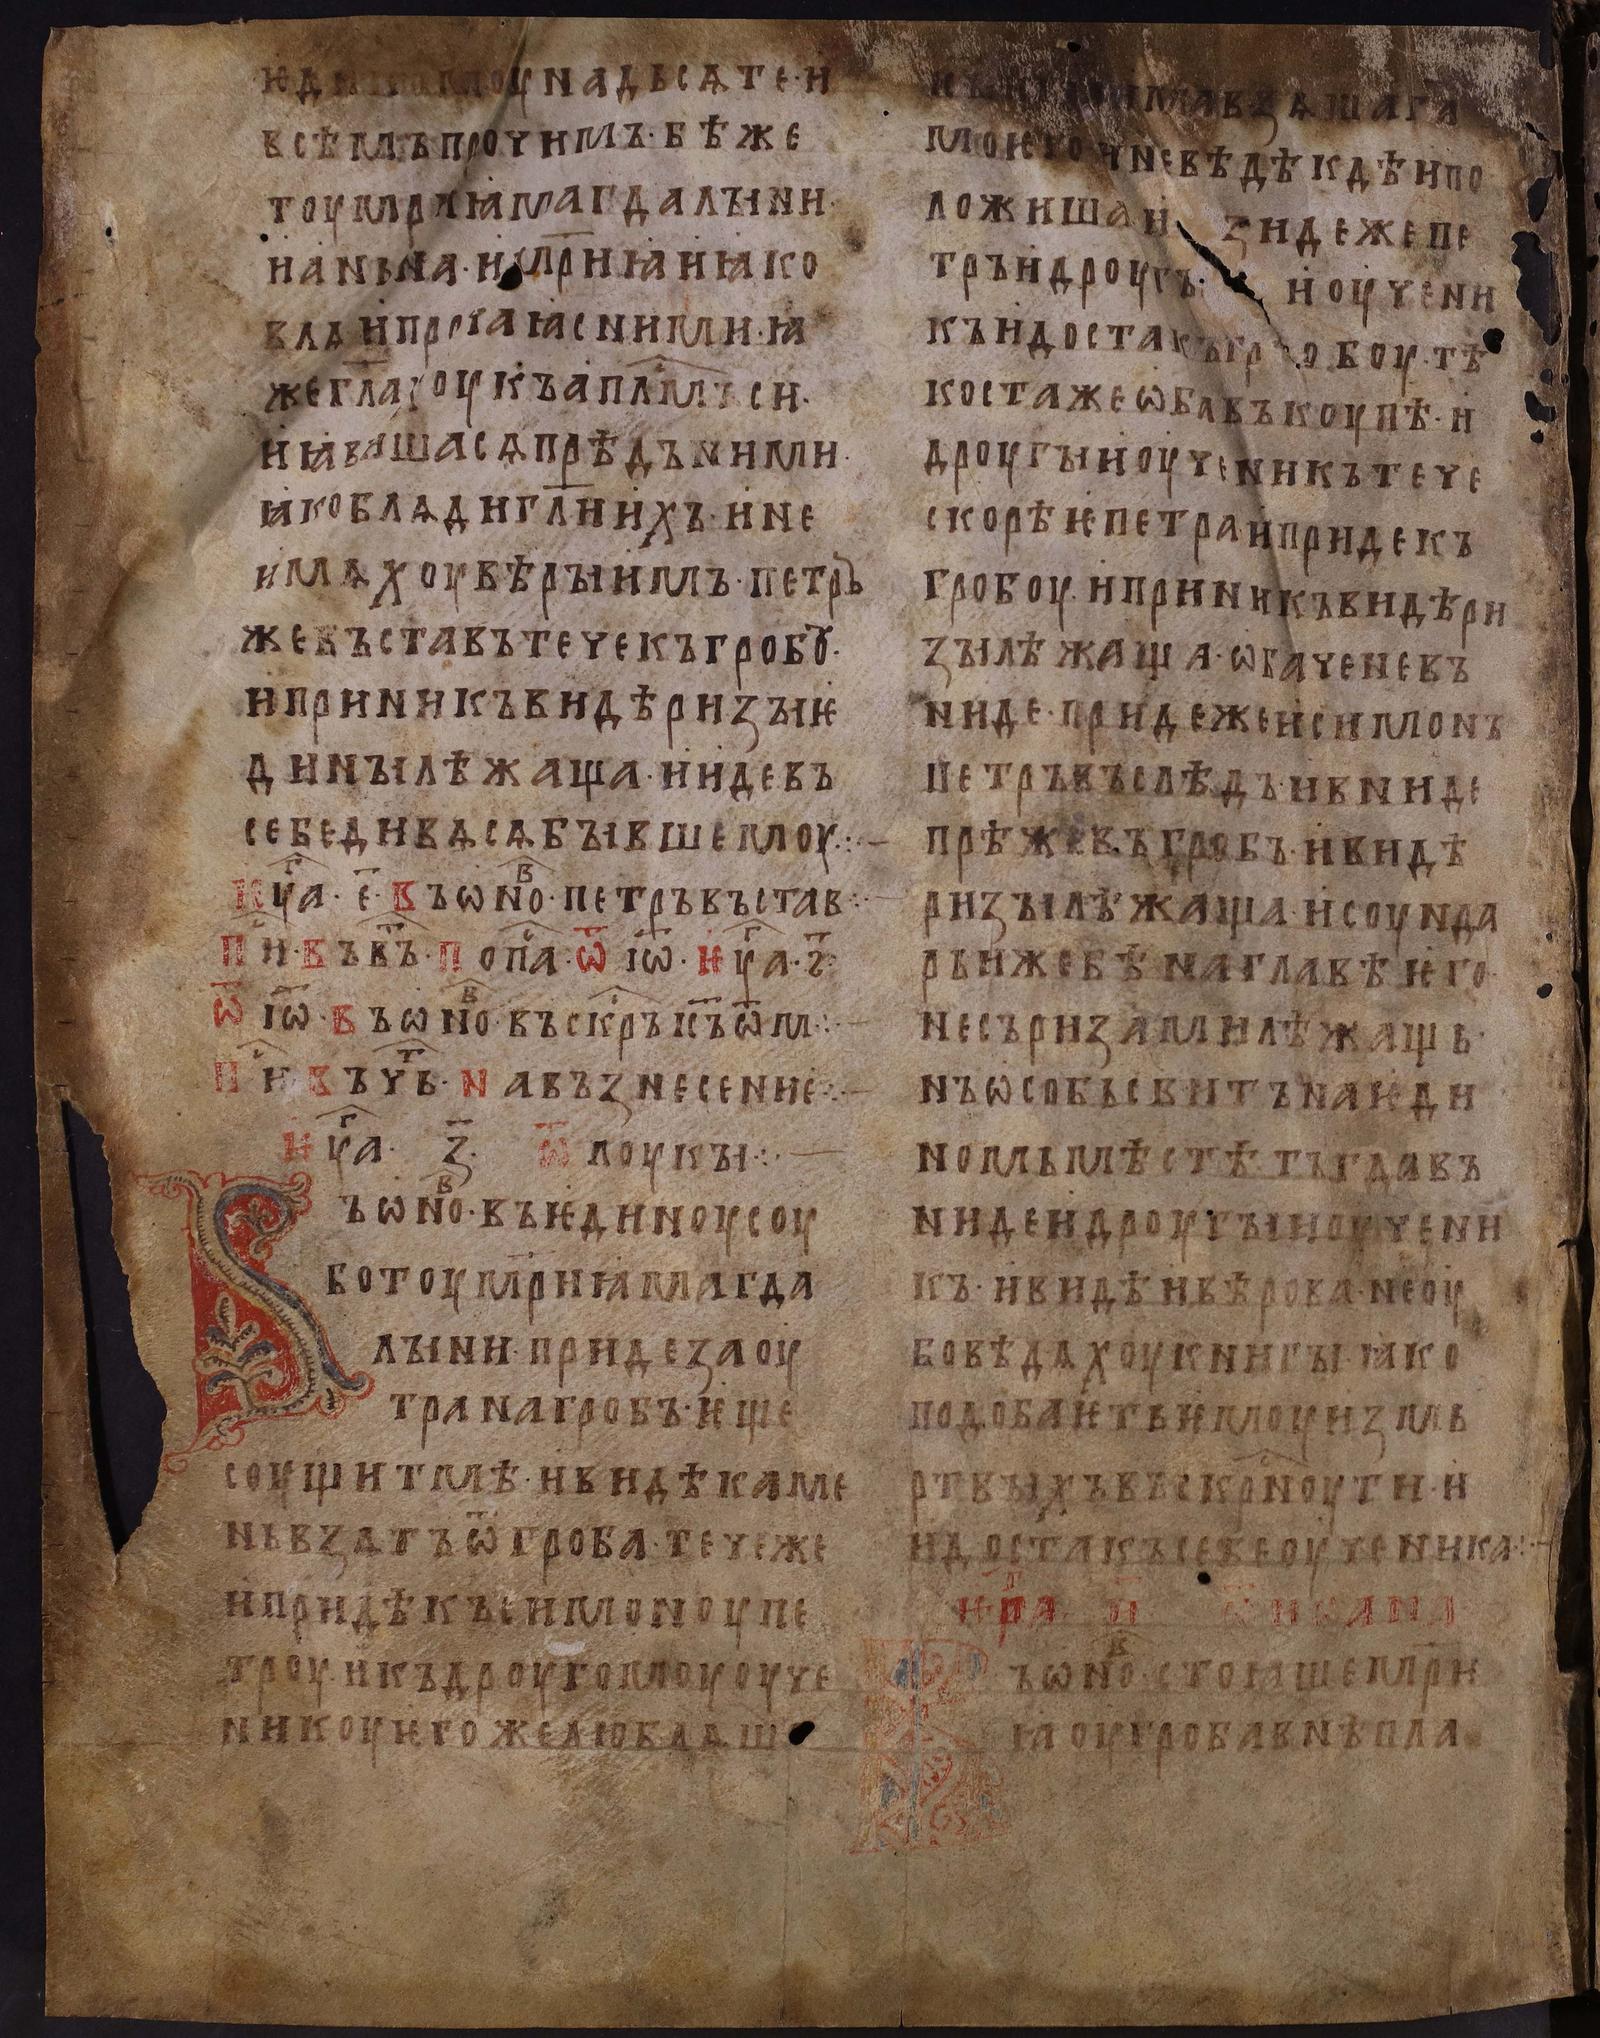 ѥдиномоу надьсѧте· и
всѣмъ прочимъ· бѣ же
тоу мриꙗ магдалыни·
иꙗньна· и мриꙗ иꙗко
влѧ и прочаꙗ с ними· ꙗ
же глахоу къ аплмъ си·
и ꙗвишасѧ прѣдъ ними·
ꙗко блѧди гли ихъ· и не
имѧхоу вѣры имъ· петръ
же въставъ тече къ гробꙋ·
и приникъ видѣ ризы ѥ
дины лѣжаща· и иде въ
себе дивѧсѧ бывшемоу·:·—
ѥуа· е҃· въ ѡно· петръ въстав·:·—
пн· въ в҃· попа· ѿ іѡ· ѥуа· г҃·
ѿ іѡ· въ ѡно· въскръ къ ѡм·:·—
пн въ чь· на възнесениѥ·:·—
ѥуа· з҃· ѿ лоукы·:·—
ъ ѡно· въ ѥдиноу соу
ботоу мриꙗ магда
лыни· приде заоу
тра на гробъ· ѥще
соущи тмѣ· и видѣ каме
нь взѧтъ ѿ гроба· тече же
и придѣ къ симоноу пе
троу· и къ дроугомоу оуче
никоу ѥго же люблѧш
взѧша га
моѥго и не вѣдѣ кдѣ и по
ложиша и· зиде же пе
тръ и дроугъ иоучени
къ идоста къ гробоу· тѣ
коста же ѡба въкоупѣ· и
дроугыи оученикъ тече
скорѣѥ петра и приде къ
гробоу· и приникъ видѣ ри
зы лѣжаща· ѡбаче не въ
ниде· приде же и симонъ
петръ въслѣдъ· и вниде
прѣже въ гробъ· и видѣ
ризы лѣжаща· и соуда
рь иже бѣ на главѣ ѥго·
не съ ризами лѣжащь·
нъ ѡсобь свитъ на ѥди
номь мѣстѣ· тъгда въ
ниде и дроугыи оучени
къ· и видѣ и вѣрова· не оу
бо вѣдѧхоу книгы· ꙗко
подобаѥть ѥмоу из мь
ртвыхъ въскрноути· и
идоста къ себе оученика·:·—
ѥуа и҃ ѿ иѡана
ъ ѡно· стоꙗше мри
ꙗ оу гроба внѣ пла